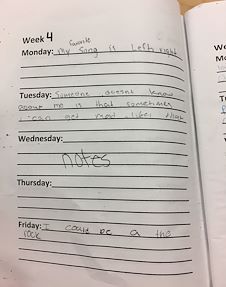 Week 4
favorite
Monday: my song is left, right
Tuesday: Someone doesnt know
about me is that sometimes
i can get mad like that
Wednesday:
notes
Thursday:
Friday: I could be a the
rock
We
Mo